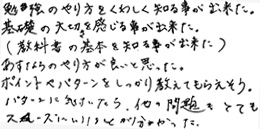 勉強の やり方を くわしく 知る事が 出来た。
基礎の 大切を感じる事が出来た。
(教科書の基本を知る事が出来た)
あすなろのやり方が良いと思った。
ポイントやパターンをしっかり教えてもらえそう。
パターンに気づいたら、他の問題もとても
スムーズにいけることが分かった。